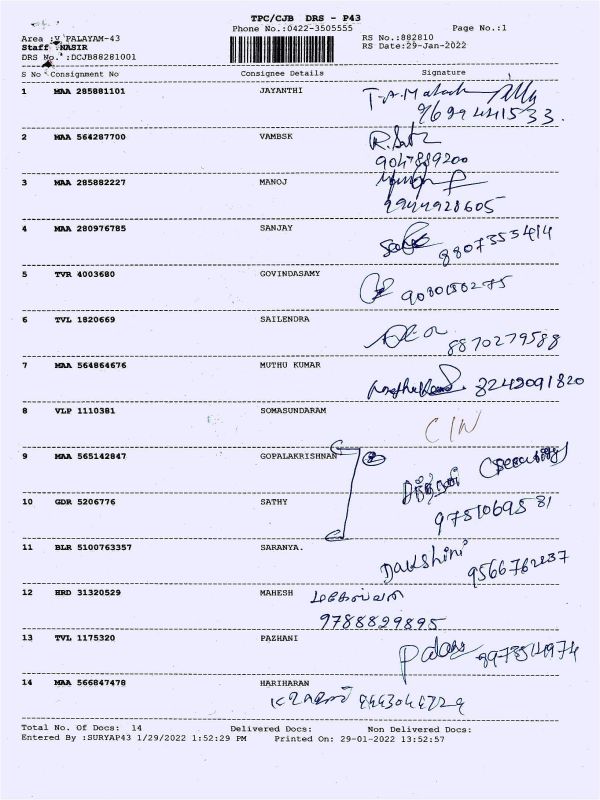 TPC/CJB DRS - P43
Phone No.:0422-3505555 Page No.:1
Area :V PALAYAM-43 RS No.:882810
Staff :NASIR RS Date:29-Jan-2022
DRS No. :DCJB88281001
S No Consignment No Consignee Details Signature
1 MAA 285881101 JAYANTHI
2 MAA 564287700 VAMBSK R.Sat
9047889200
3 MAA 285882227 MANOJ
9944928605
4 MAA 280976785 SANJAY 8807353414
5 TVR 4003680 GOVINDASAMY
6 TVL 1820669 SAILENDRA
8870279588
7 MAA 564864676 MUTHU KUMAR
8 VLP 1110381 SOMASUNDARAM
9 MAA 565142847 GOPALAKRISHNAN
10 GDR 5206776 SATHY 9751069581
11 BLR 5100763357 SARANYA. Dakshini
12 HRD 31320529 MAHESH
9788829895
13 TVL 1175320 PAZHANI
14 MAA 566847478 HARIHARAN
Total No. Of Docs: 14 Delivered Docs: Non Delivered Docs:
Entered By :SURYAP43 1/29/2022 1:52:29 PM Printed On: 29-01-2022 13:52:57